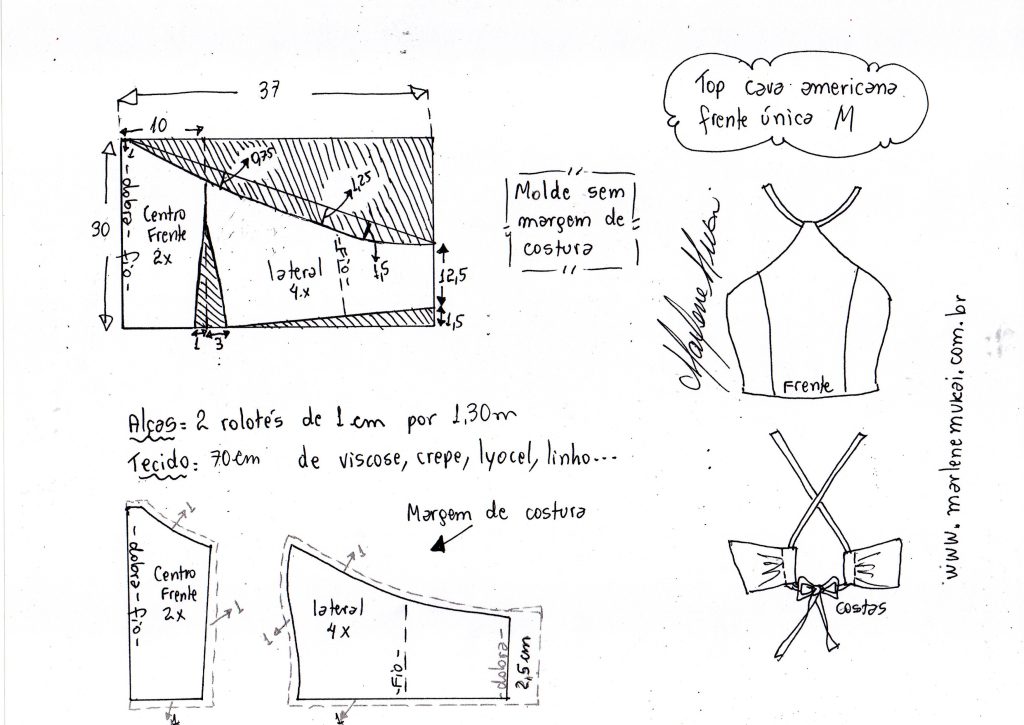 37
10
1
0,75
1,25
- dobra - fio -
30
Centro
Frente
2x
lateral
4.x
- Fió -
1,5
12,5
1,5
1
3
Molde sem
margem de
costura
Top cava americana
frente única M
Marlene Mukai
Frente
www.marlenemukai.com.br
Alças= 2 rolotés de 1 cm por 1,30m
Tecido: 70cm de viscose, crepe, lyocel, linho...
Margem de costura
- dobra - fio -
Centro
Frente
2x
1
1
1
lateral
4x
1
1
1
- Fio -
- dobra -
2,5cm
costas